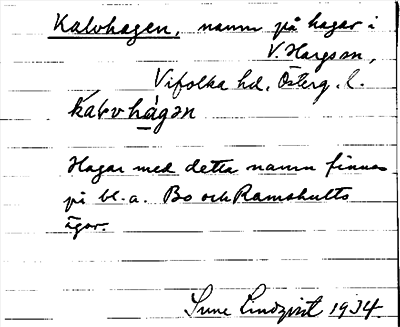 Kalvhagen, namn på hagar i
V. Hargs sn,
Vifolka hd, Österg. l.
kalvhågən
Hagar med detta namn finnas
på bl. a. Bo och Ramshults
ägor.
Sune Lindqvist 1934.